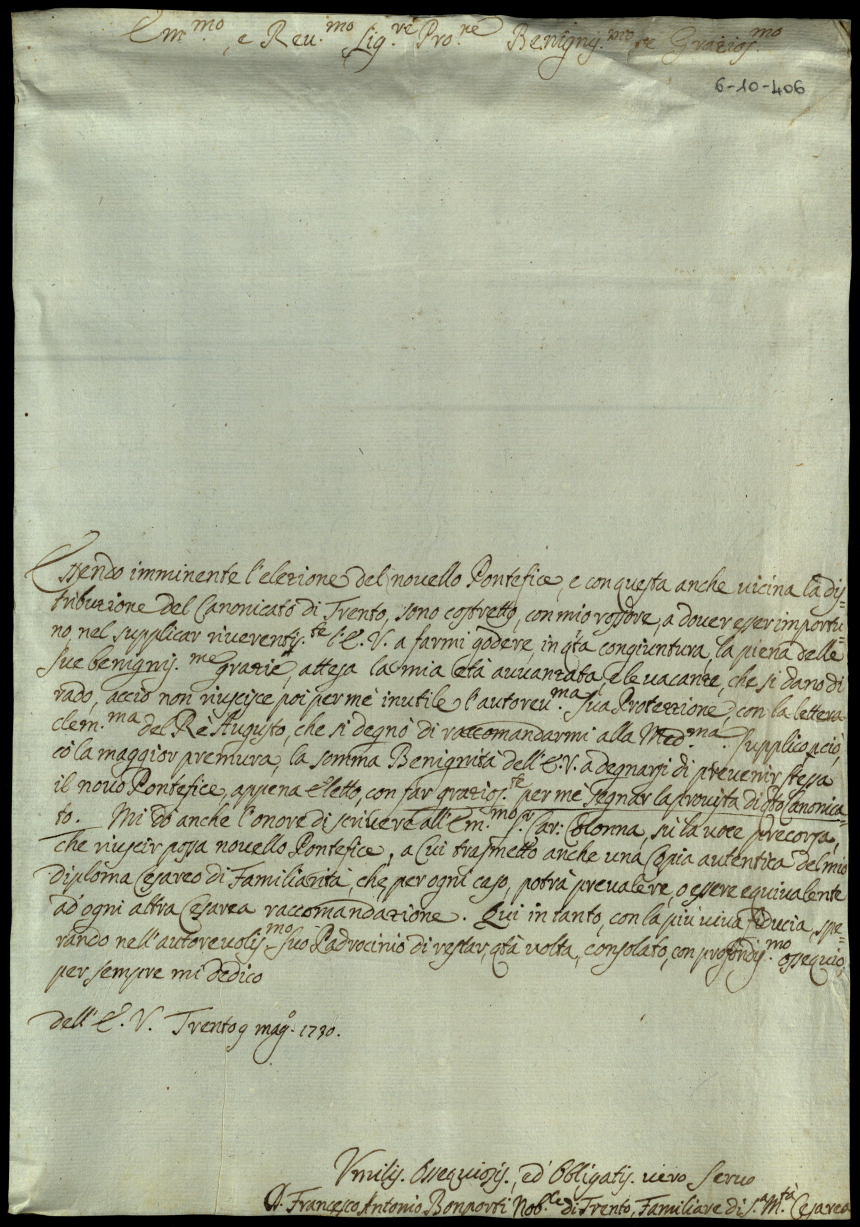 Em.mo, e Reu.mo Sig.re Pro.ne Benigniss.mo, e Grazios.mo
6-10-406
Essendo imminente l'elezione del nouello Pontefice, e con questa anche uicina la dis=
tribuzione del Canonicato di Trento, sono costretto, con mio rossore, a douer esser importu=
no, nel supplicar riuerentis.te l'E. V. a farmi godere, in qta congiuntura, la piena delle
Sue benignis.me grazie, attesa la mia età auuanzata, e le uacanze, che si dano di
rado, acciò non riuscisce poi per me inutile l'autoreu.ma Sua Protezzione, con la lettera
clem.ma del Rè Augusto, che si degnò di raccomandarmi alla Med.ma. Supplico pciò,
cò la maggior premura, la somma Benignità dell'E. V. a degnarsi di preuenir stessa
il nouo Pontefice, appena eletto, con far grazios.te per me segnar la prouista di dto Canonica=
to. Mi dò anche l'onore di scriuere all'Em.mo Sr. Car: Colonna, sù la uoce precorsa,
che riuscir possa nouello Pontefice, a Cui trasmetto anche una Copia autentica del mio
Diploma Cesareo di Familiarità, che, per ogni caso, potrà preualere, o essere equiualente
ad ogni altra Cesarea raccomandazione. Qui in tanto, con la più uiua fiducia, spe=
rando nell'autoreuolis.mo suo Padrocinio di restar, qta uolta, consolato, con profondis.mo ossequio,
per sempre mi dedico
dell'E. V. Trento 9 mag.o 1730.
Vmilis. Ossequiosis., ed Obligatis. uero Seruo
D. Francesco Antonio Bonporti Nob.le di Trento, Familiare di S.a M.tà Cesarea